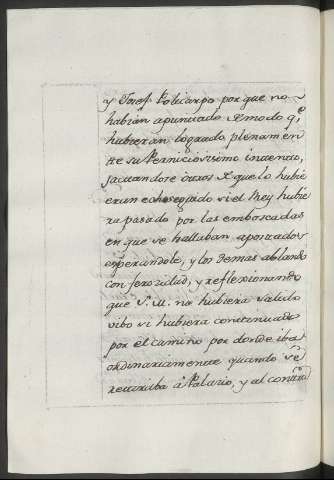 y Josef Policarpo por que no
habian apuntado de modo q.e
hubieran logrado plenamen
te su Perniciosisimo intento,
jactandose otros de que lo hubie
ran conseguido si el Rey hubie
ra pasado por las emboscadas
en que se hallaban apostados
esperandole, y los demas ablando
con ferozidad, y reflexionando
que S. M. no hubiera salido
vibo si hubiera continuado
por el camino por donde iba
ordinariamente quando se
retiraba à Palacio, y al contra